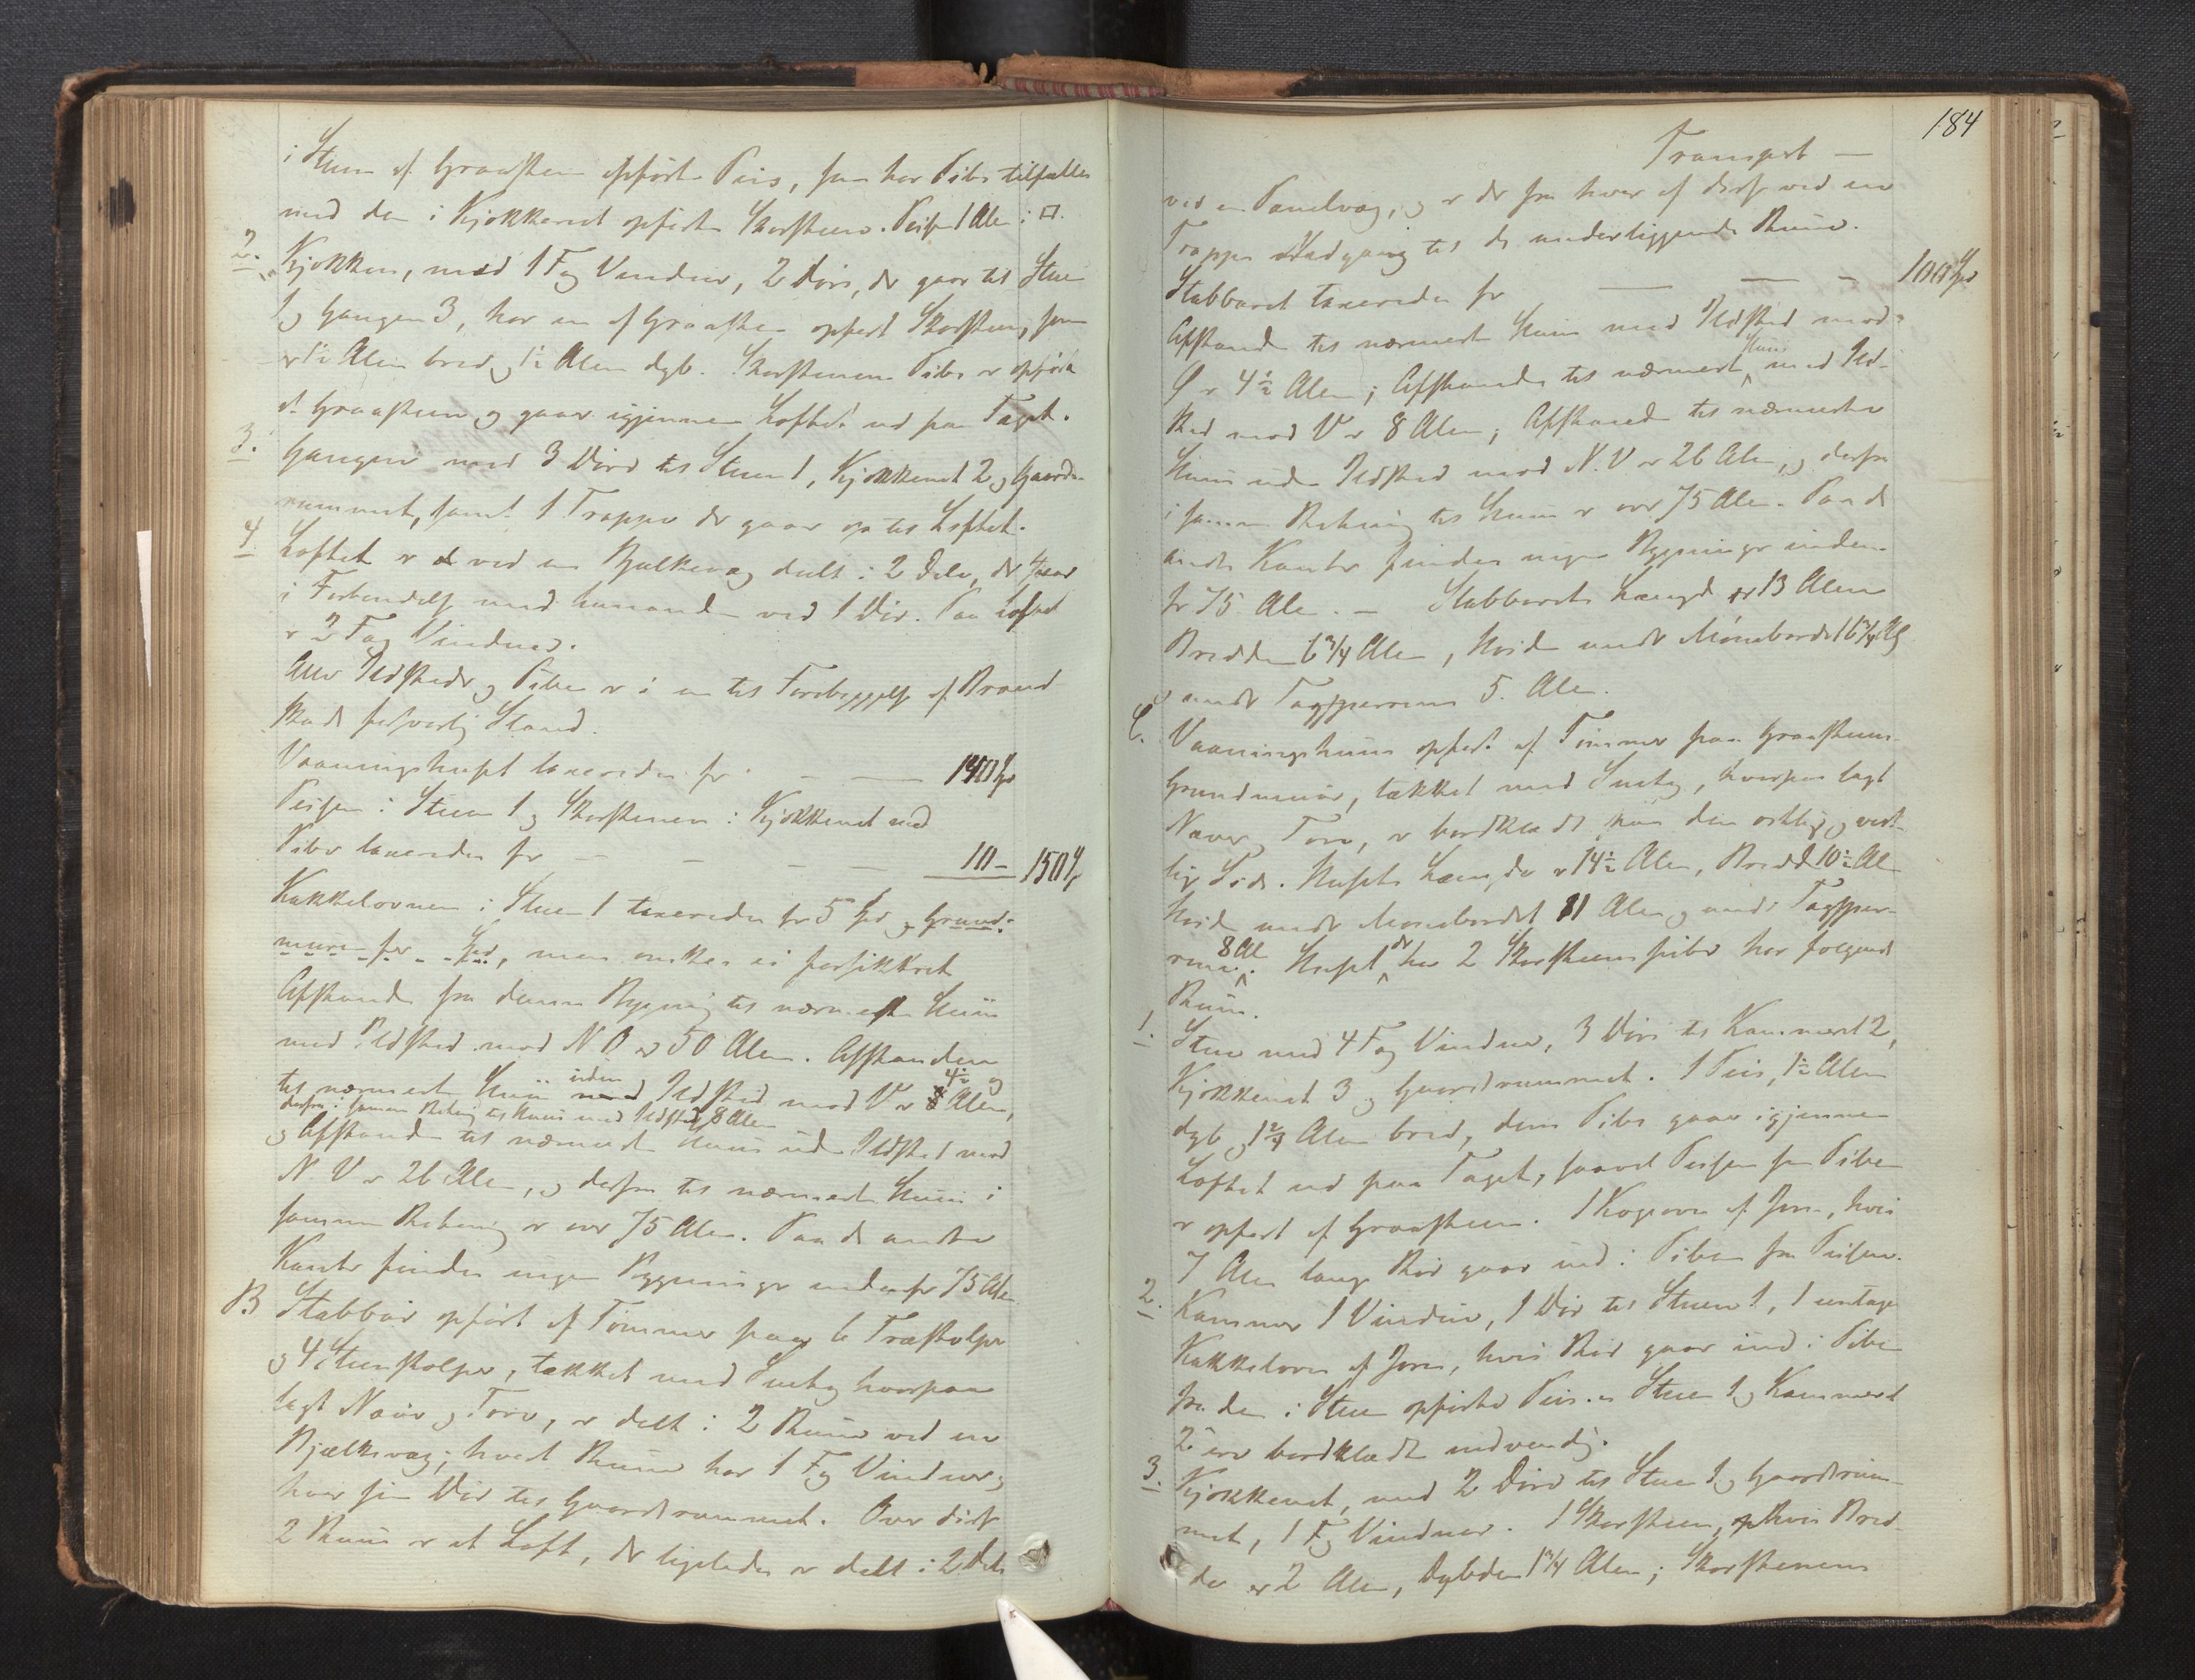 i Stuen af Graasteen opført Peis, som har Pibe tilfælles
med den i Kjøkkenet opførte Skorsteen. Peisen 1 Alen i □.
2. Kjøkken, med 1 Fag Vinduer, 2 Døre, der gaar til Stue
1 og Gangen 3, har en af Graasteen opført Skorsteen, som
er 1½ Alen bred og 1½ Alen dyb. Skorstenens Pibe er opført
af Graasteen og gaar igjennem Loftet ud paa Taget.
3. Gangen med 3 Døre til Stuen 1, Kjøkkenet 2 og Gaards-
rummet, samt 1 Trappe der gaar op til Loftet.
4. Loftet er ved en Bjelkevæg deelt i 2 Dele, der staar
i Forbindelse med hinanden ved 1 Dør. Paa Loftet
er 2 Fag Vinduer.
Alle Ildsteder og Piben er i en til Forebyggelse af Brand-
skade forsvarlig Stand.
Vaaningshuset taxeredes for — — 140 Spd
Peisen i Stuen 1 og Skorstenen i Kjøkkenet med
Pibe taxeredes for — — — — 10 — 150
Kakkelovnen i Stuen 1 taxeredes for 5 Spd og Grund-
muren for Spd, men ønskes ei forsikkret
Afstanden fra denne Bygning til nærmeste Huus
med Ildsted mod N.O er 50 Alen. Afstanden
til nærmeste Huus uden Ildsted mod V er 4½ Alen, og
derfra i samme Retning til Huus med Ildsted 8 Alen
og Afstanden til nærmeste Huus uden Ildsted mod
N.V er 26 Alen, og derfra til nærmeste Huus i
samme Retning er over 75 Alen. Paa de andre
Kanter findes ingen Bygninger indenfor 75 Alen.
B Stabbur opført af Tømmer paa 6 Træstolper
og 4 Steenstolper, tækket med Sutag hvorpaa
lagt Næver og Torv, er deelt i 2 Rum ved en
Bjælkevæg; hvert Rum har 1 Fag Vinduer og
hver sin Dør til Gaardsrummet. Over disse
2 Rum er et Loft, der ligeledes er deelt i 2 Dele
184
Transport —
ved en Panelvæg, og er der fra hver af disse ved en
Trappe Nedgang til de underliggende Rum.
Stabburet taxeredes for — — — 100 Spd
Afstanden til nærmeste Huus med Ildsted mod
Ø er 4½ Alen; Afstanden til nærmeste Huus med Ild-
sted mod V er 8 Alen; Afstanden til nærmeste
Huus uden Ildsted mod N.V er 26 Alen, og derfra
i samme Retning til Huus er over 75 Alen. Paa de
andre Kanter findes ingen Bygninger inden-
for 75 Alen. — Stabburets Længde er 13 Alen
Bredden 6¾ Alen, Høiden under Mønebordet 6¾ Al
og under Tagsperrerne 5 Alen.
C. Vaaningshuus opført af Tømmer paa Graasteens-
Grundmuur, tækket med Sutag, hvorpaa lagt
Næver og Torv, er bordklædt paa den østlige og vest-
lige Side. Husets Længde er 14½ Alen, Bredde 10½ Al
Høide under Mønebordet 11 Alen og under Tagsper-
rerne 8 Al. Huset der har 2 Skorsteenspiber har følgende
Rum.
1. Stue med 4 Fag Vinduer, 3 Døre til Kammeret 2,
Kjøkkenet 3 og Gaardsrummet. 1 Peis, 1½ Alen
dyb og 1¾ Alen bred, dens Pibe gaar igjennem
Loftet ud paa Taget, saavel Peisen som Piben
er opført af Graasteen. 1 Kogeovn af Jern, hvis
7 Alen lange Rør gaar ind i Piben fra Peisen.
2. Kammer 1 Vindue, 1 Dør til Stuen 1, 1 etages
Kakkelovn af Jern, hvis Rør gaar ind i Piben
fra den i Stuen opførte Peis. Stuen 1 og Kammeret
2 ere bordklædt indvendig.
3. Kjøkkenet, med 2 Døre til Stuen 1 og Gaardsrum-
met, 1 Fag Vinduer. 1 Skorsteen, hvis Bred-
de er 2 Alen, Dybden 1¾ Alen; Skorstenens